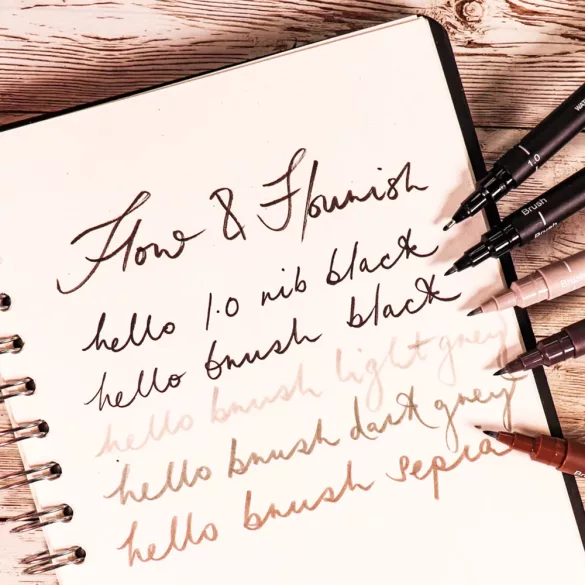 Flow & Flourish
hello 1.0 nib black
hello brush black
hello brush light grey
hello brush dark grey
hello brush sepia
1.0
Brush
Brush